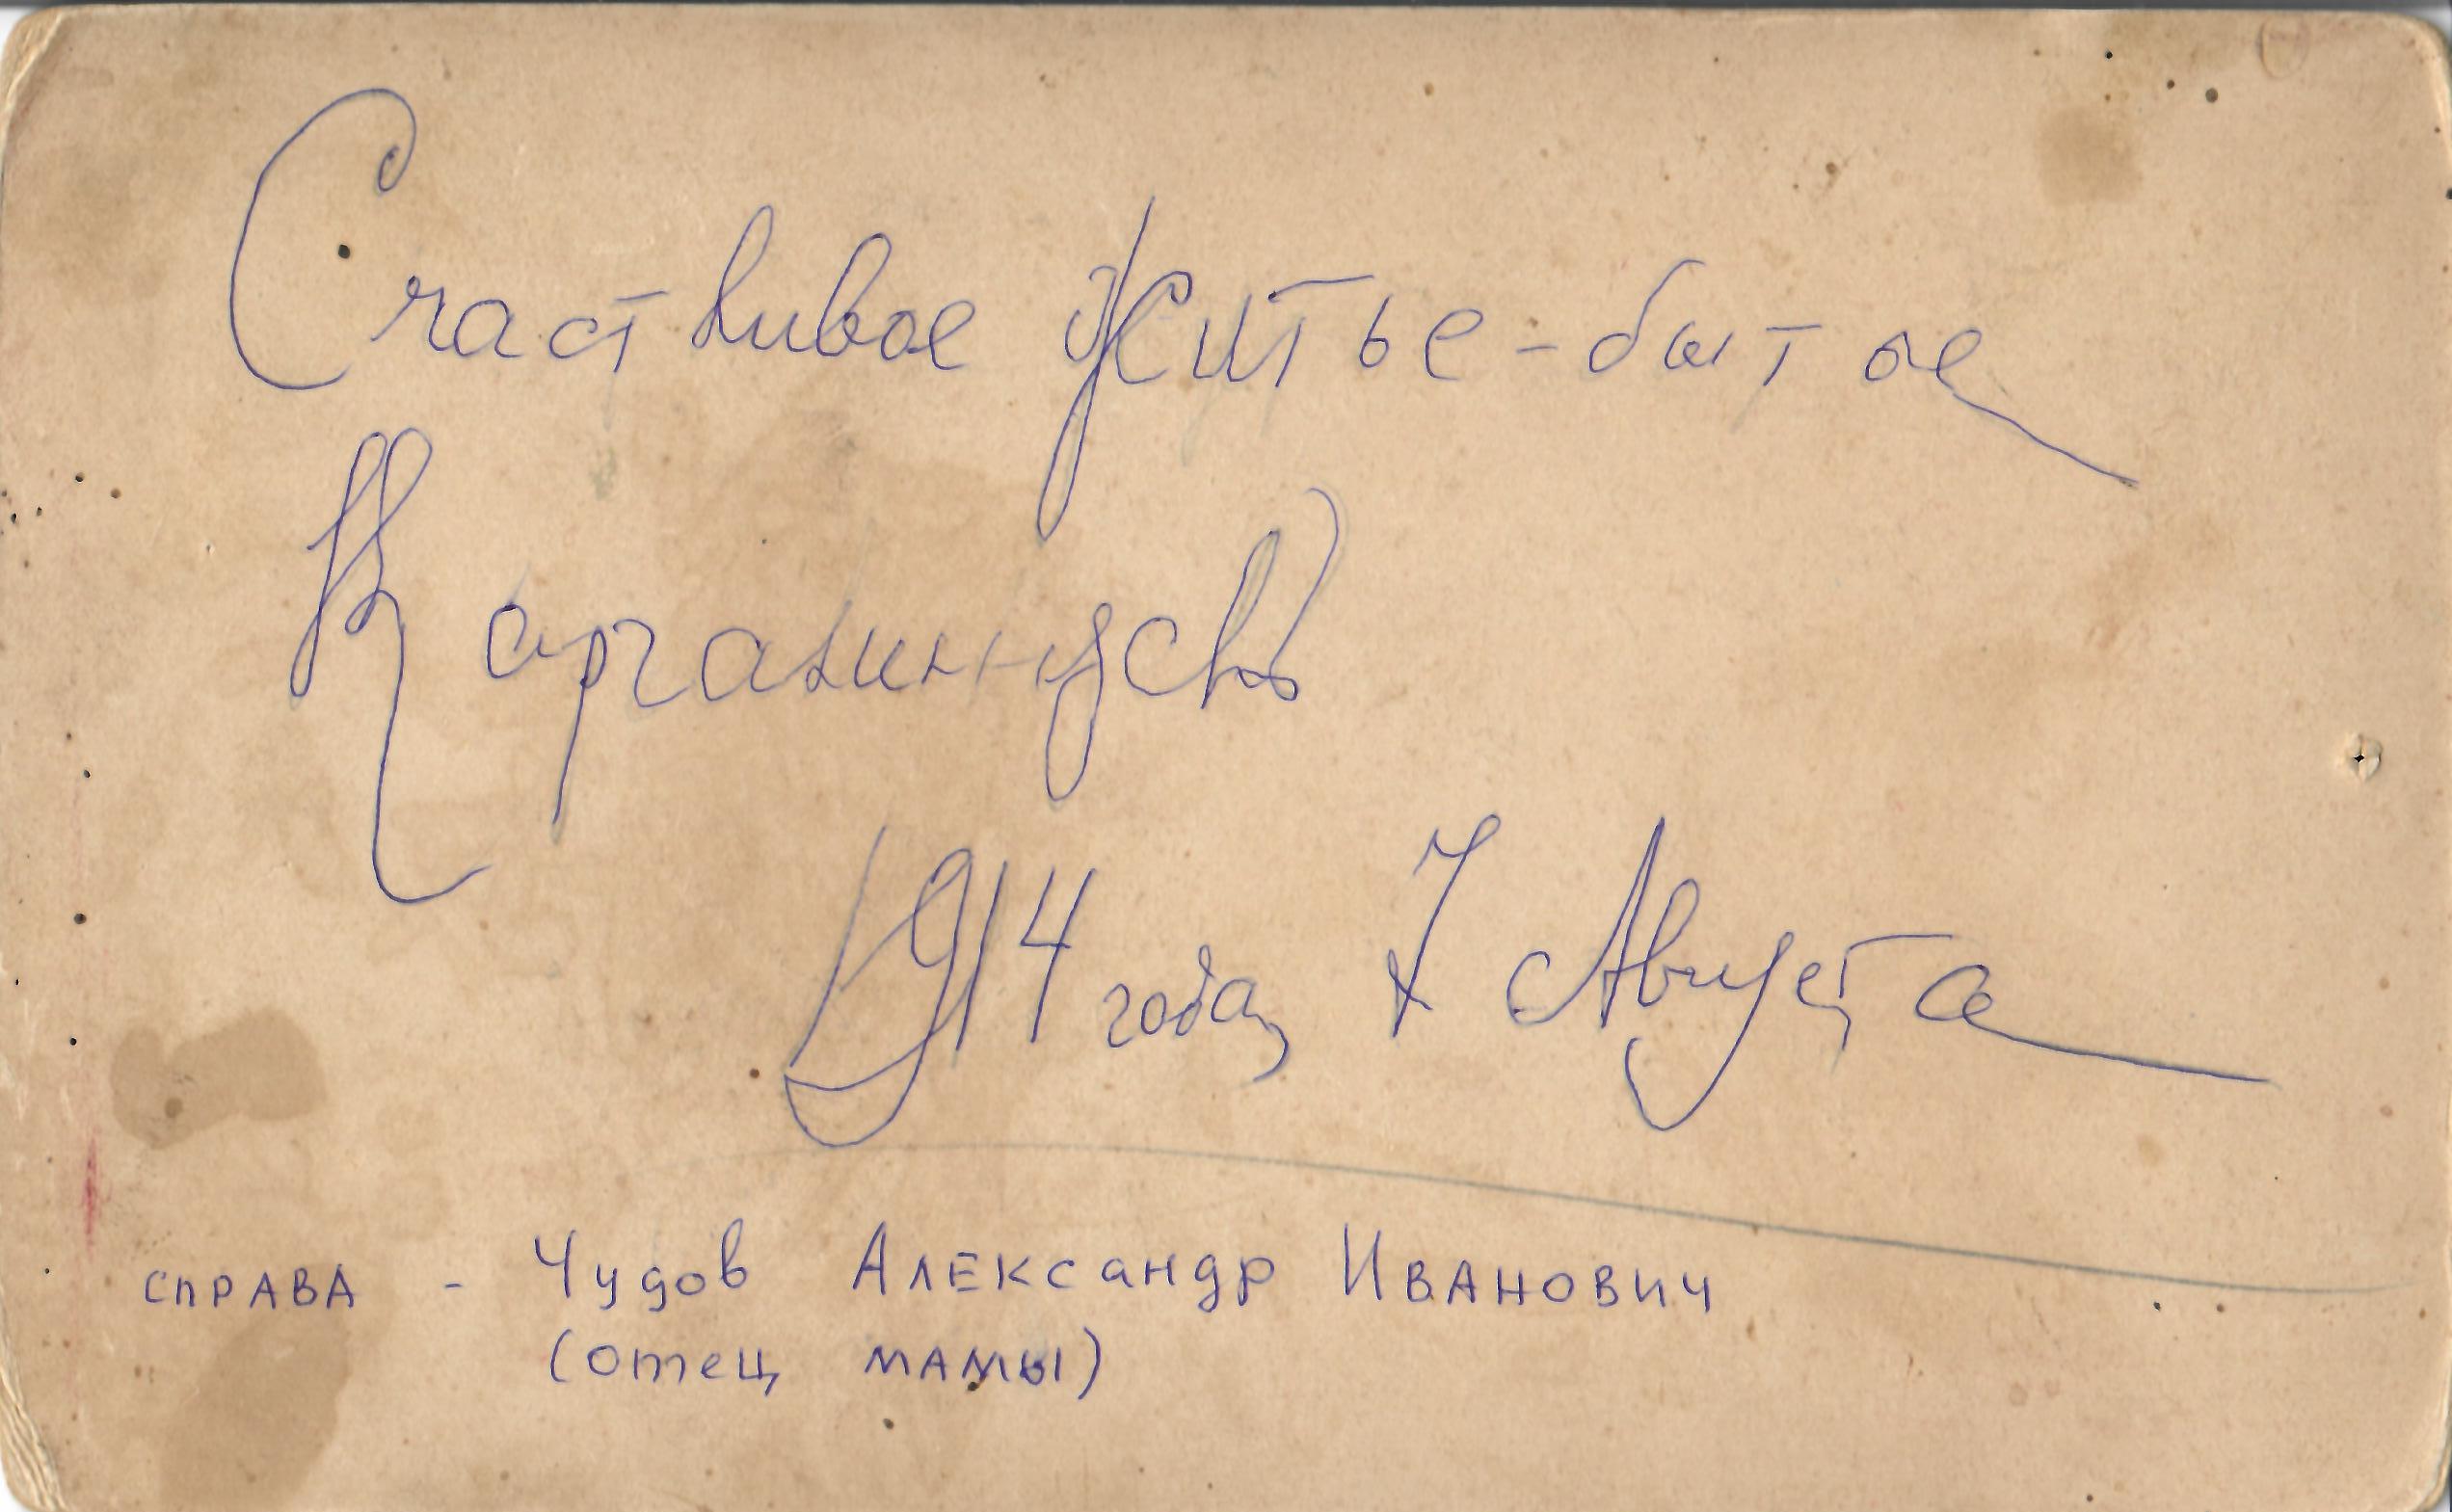 Счастливое житье-бытье
1914 года, 7 Августа
СПРАВА - Чудов АЛЕКСАНДР ИВАНОВИЧ
(отец МАМЫ)